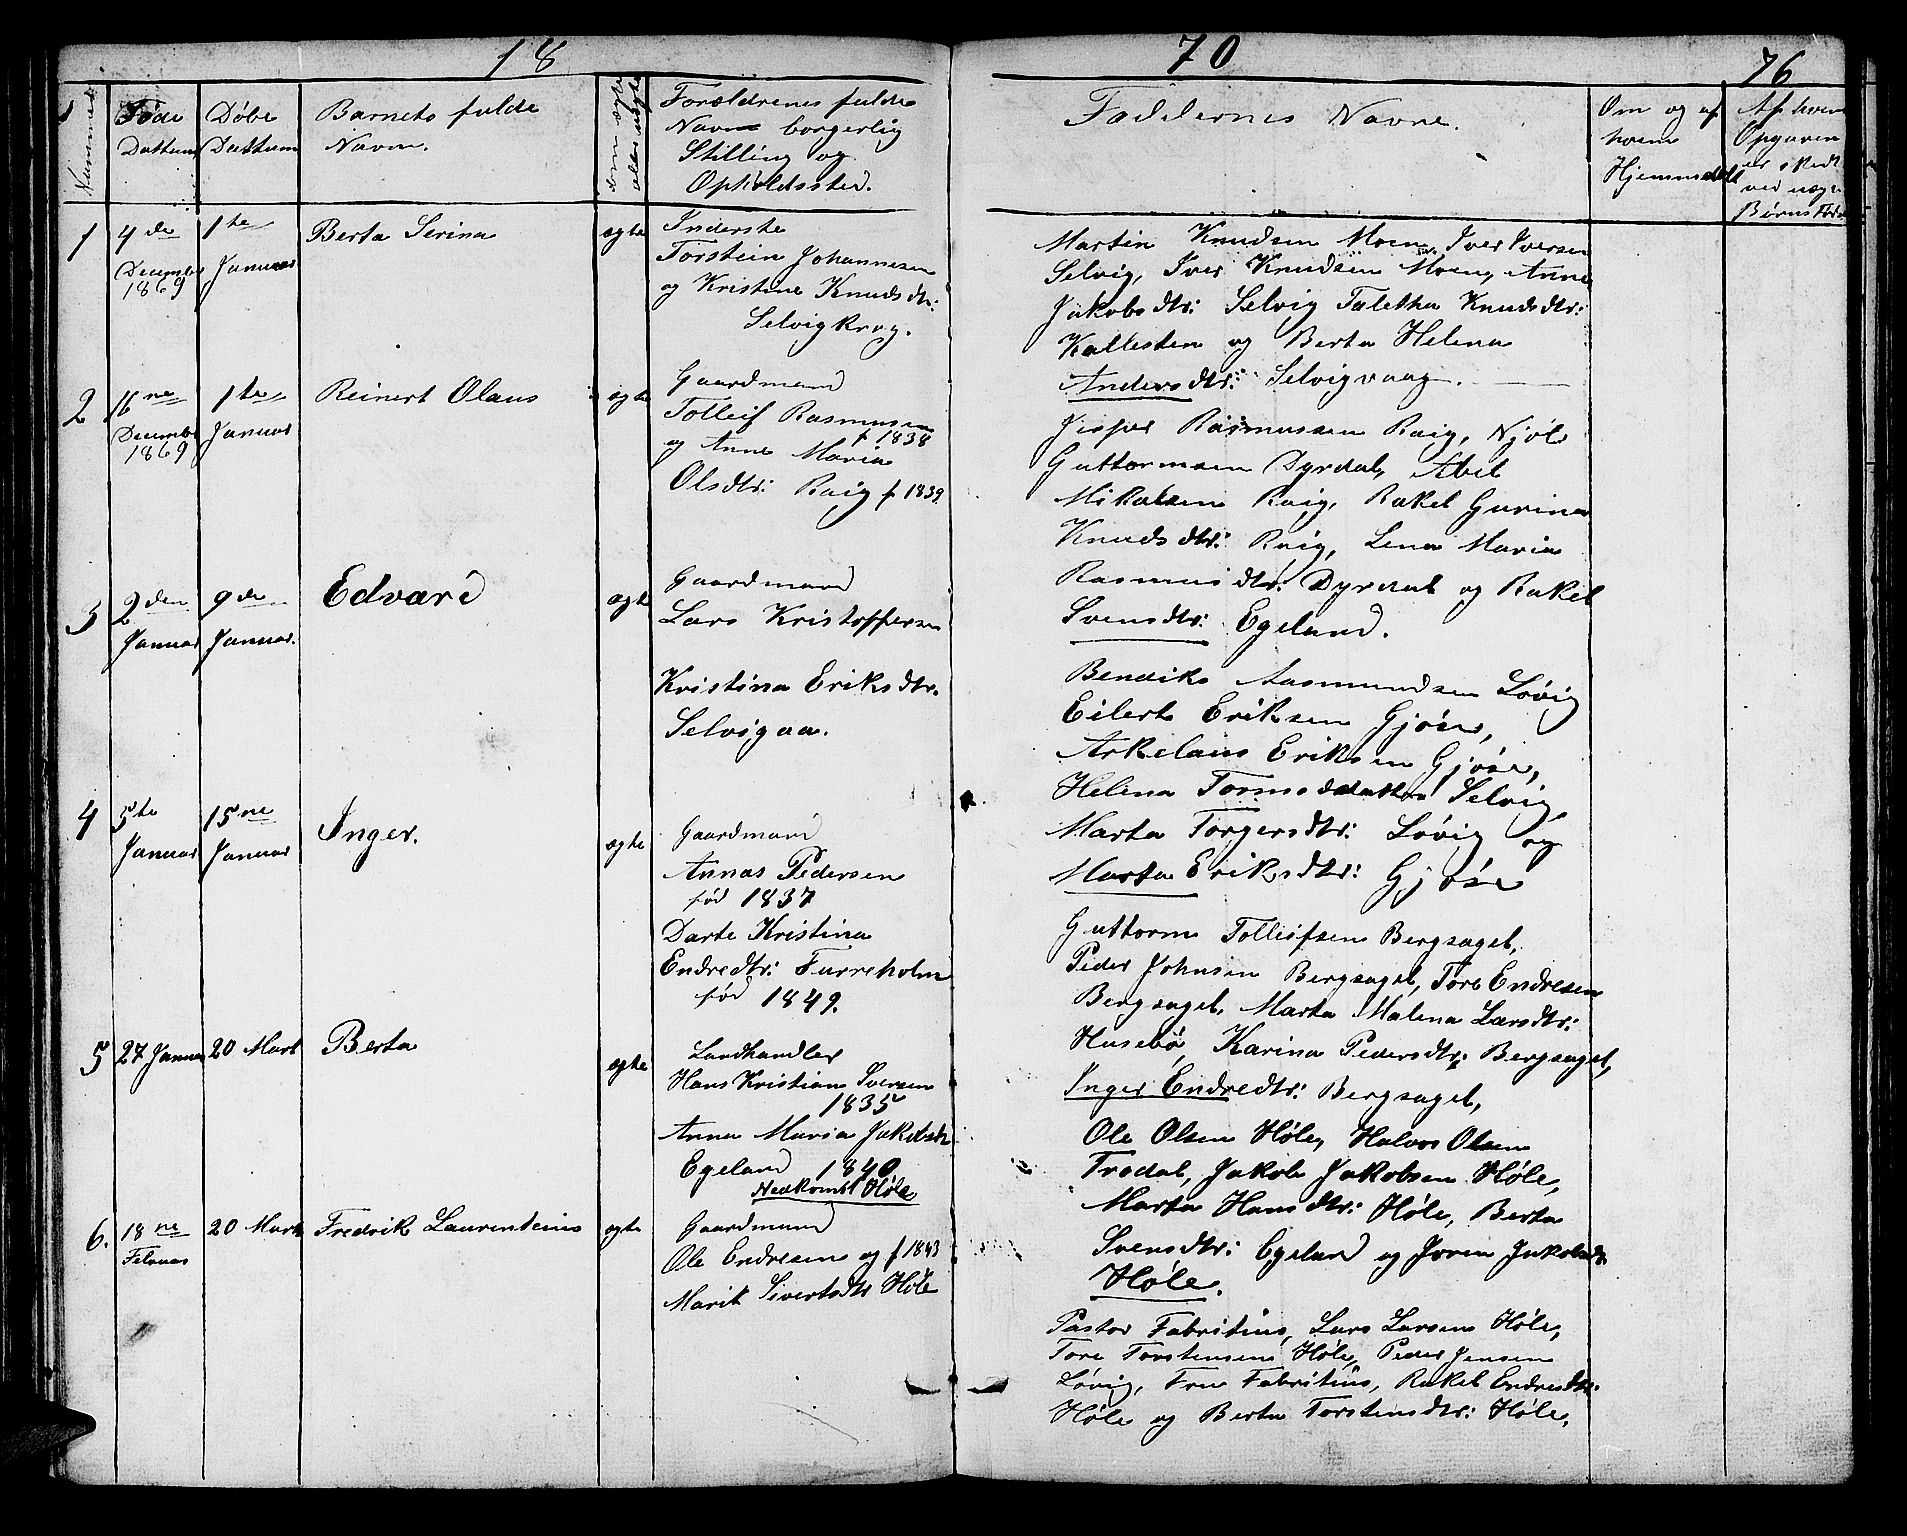 18
70
76
Nummer
Føde
Dattum
Døbe
Dattum
Barnets fulde
Navn.
om ægte
eller uægte
Forældrenes fulde
Navn borgerlig
Stilling og
Opholdssted.
Faddernes Navne.
Om og af
hvem
Hjemmedøbt
Af hvem
Opgaven
er skedt
ved uægte
Børns
1
4de
December
1869
1te
Januar
Berta Serina
ægte
Inderste
Torstein Johannesen
og Kristine Knudsdtr:
Selvigkrog.
Martin Knudsen Moen, Iver Iversen
Selvig, Iver Knudsen Moen, Anne
Jakobsdtr: Selvig Taletha Knudsdtr:
Kallesten og Berta Helena
Andersdtr: Selvigvaag.
2
16ne
December
1869
1te
Januar
Reinert Olaus
ægte
Gaardmand
Tolleif Rasmusen
f 1838
og Anne Maria
Olsdtr: Raig f 1839
Jesper Rasmussen Raig, Njøl
Guttormsen Dyrdal, Abel
Mikalsen Raig, Rakel Gurina
Knudsdtr: Raig, Lena Maria
Rasmusdtr: Dyrdal og Rakel
Svensdtr: Egeland.
3
2den
Januar
9de
Januar.
Edvard
ægte
Gaardmand
Lars Kristoffersen
Kristina Eriksdtr.
Selvigaa.
Bendik Aasmundsen Løvig
Eilert Eriksen Gjøse,
Arkelaus Eriksen Gjøse,
Helena Tormodsdatter Selvig
Marta Torgersdtr: Løvig og
Marta Eriksdtr: Gjøse
4
5te
Januar
15ne
Januar
Inger.
ægte
Gaardmand
Annas Pedersen
fød 1837
Darte Kristina
Endredtr: Furreholm
fød 1849.
Guttorm Tolleifsen Bergsagel,
Peder Johnsen Bergsagel, Tore Endresen
Bergsagel, Marta Malena Larsdtr:
Husebø, Karina Pedersdtr: Bergsagel,
Inger Endredtr: Bergsagel,
5
27 Januar
20 Marts
Berta
ægte
Landhandler
Hans Kristian Svensen
1835
Anna Maria Jakobsdtr
Egeland 1840
Nedkomst Høle
Ole Olsen Høle, Halvor Olsen
Trodal, Jakob Jakobsen Høle,
Marta Hansdtr: Høle, Berta
Svensdtr: Egeland og Joren Jakobsdtr
Høle.
6.
18ne
Februar
20 Marts
Fredrik Laurentius
ægte
Gaardmand
Ole Endresen og f 1843
Marit Sivertsdtr Høle
Pastor Fabritius, Lars Larsen Høle,
Tore Torstensen Høle, Peder Jensen
Løvig, Fru Fabritius, Rakel Endresdtr:
Høle og Berta Torstensdtr: Høle.